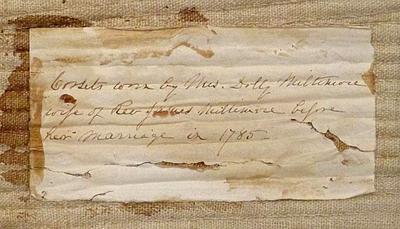 Corsets worn by Mrs. Dolly Miltimore
wife of Rev James Miltimore before
her marriage in 1785